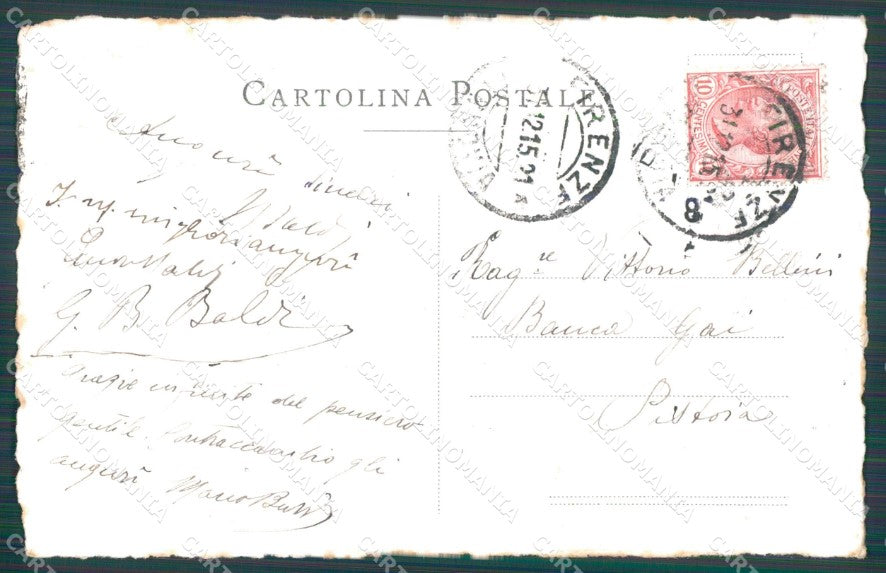 CARTOLINA POSTALE
Auguri
sinceri
Baldi
I. m. migliori auguri
G. B. Baldi
Grazie infinite del pensiero
gentile. Contraccambio gli
auguri Mario
FIRENZE
12.15.21
FIRENZE
8
10
Rag.re Vittorio Bellini
Banca Gai
Pistoia
CARTOLINOMANIA